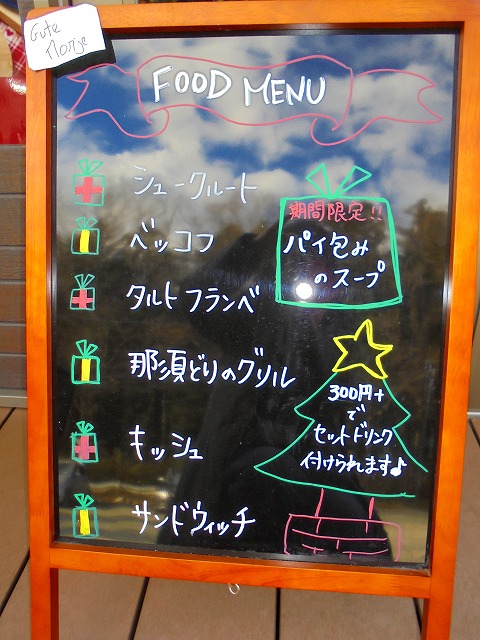 Gute
FOOD MENU
シュークルート
ベッコフ
タルトフランベ
那須どりのグリル
キッシュ
サンドウィッチ
期間限定!!
パイ包み
のスープ
300円+
で
セットドリンク
付けられます♪